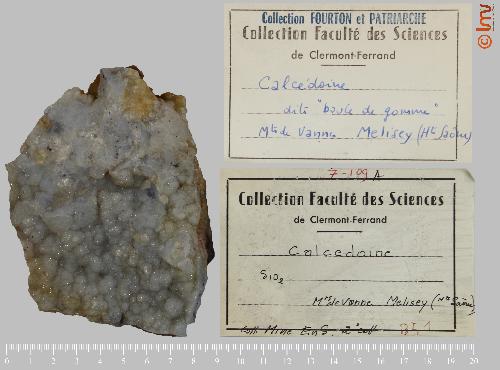 Collection FOURTON et PATRIARCHE
Collection Faculté des Sciences
de Clermont-Ferrand
Calcédoine
dite "boule de gomme"
Mts de Vanne Melisey (Hte Saône)
7-199 A
Collection Faculté des Sciences
de Clermont-Ferrand
Calcedoine
SiO2
Mts de Vanne Melisey (Hte Saône)
Coll Mine
© lmv
0 1 2 3 4 5 6 7 8 9 10 11 12 13 14 15 16 17 18 19 20